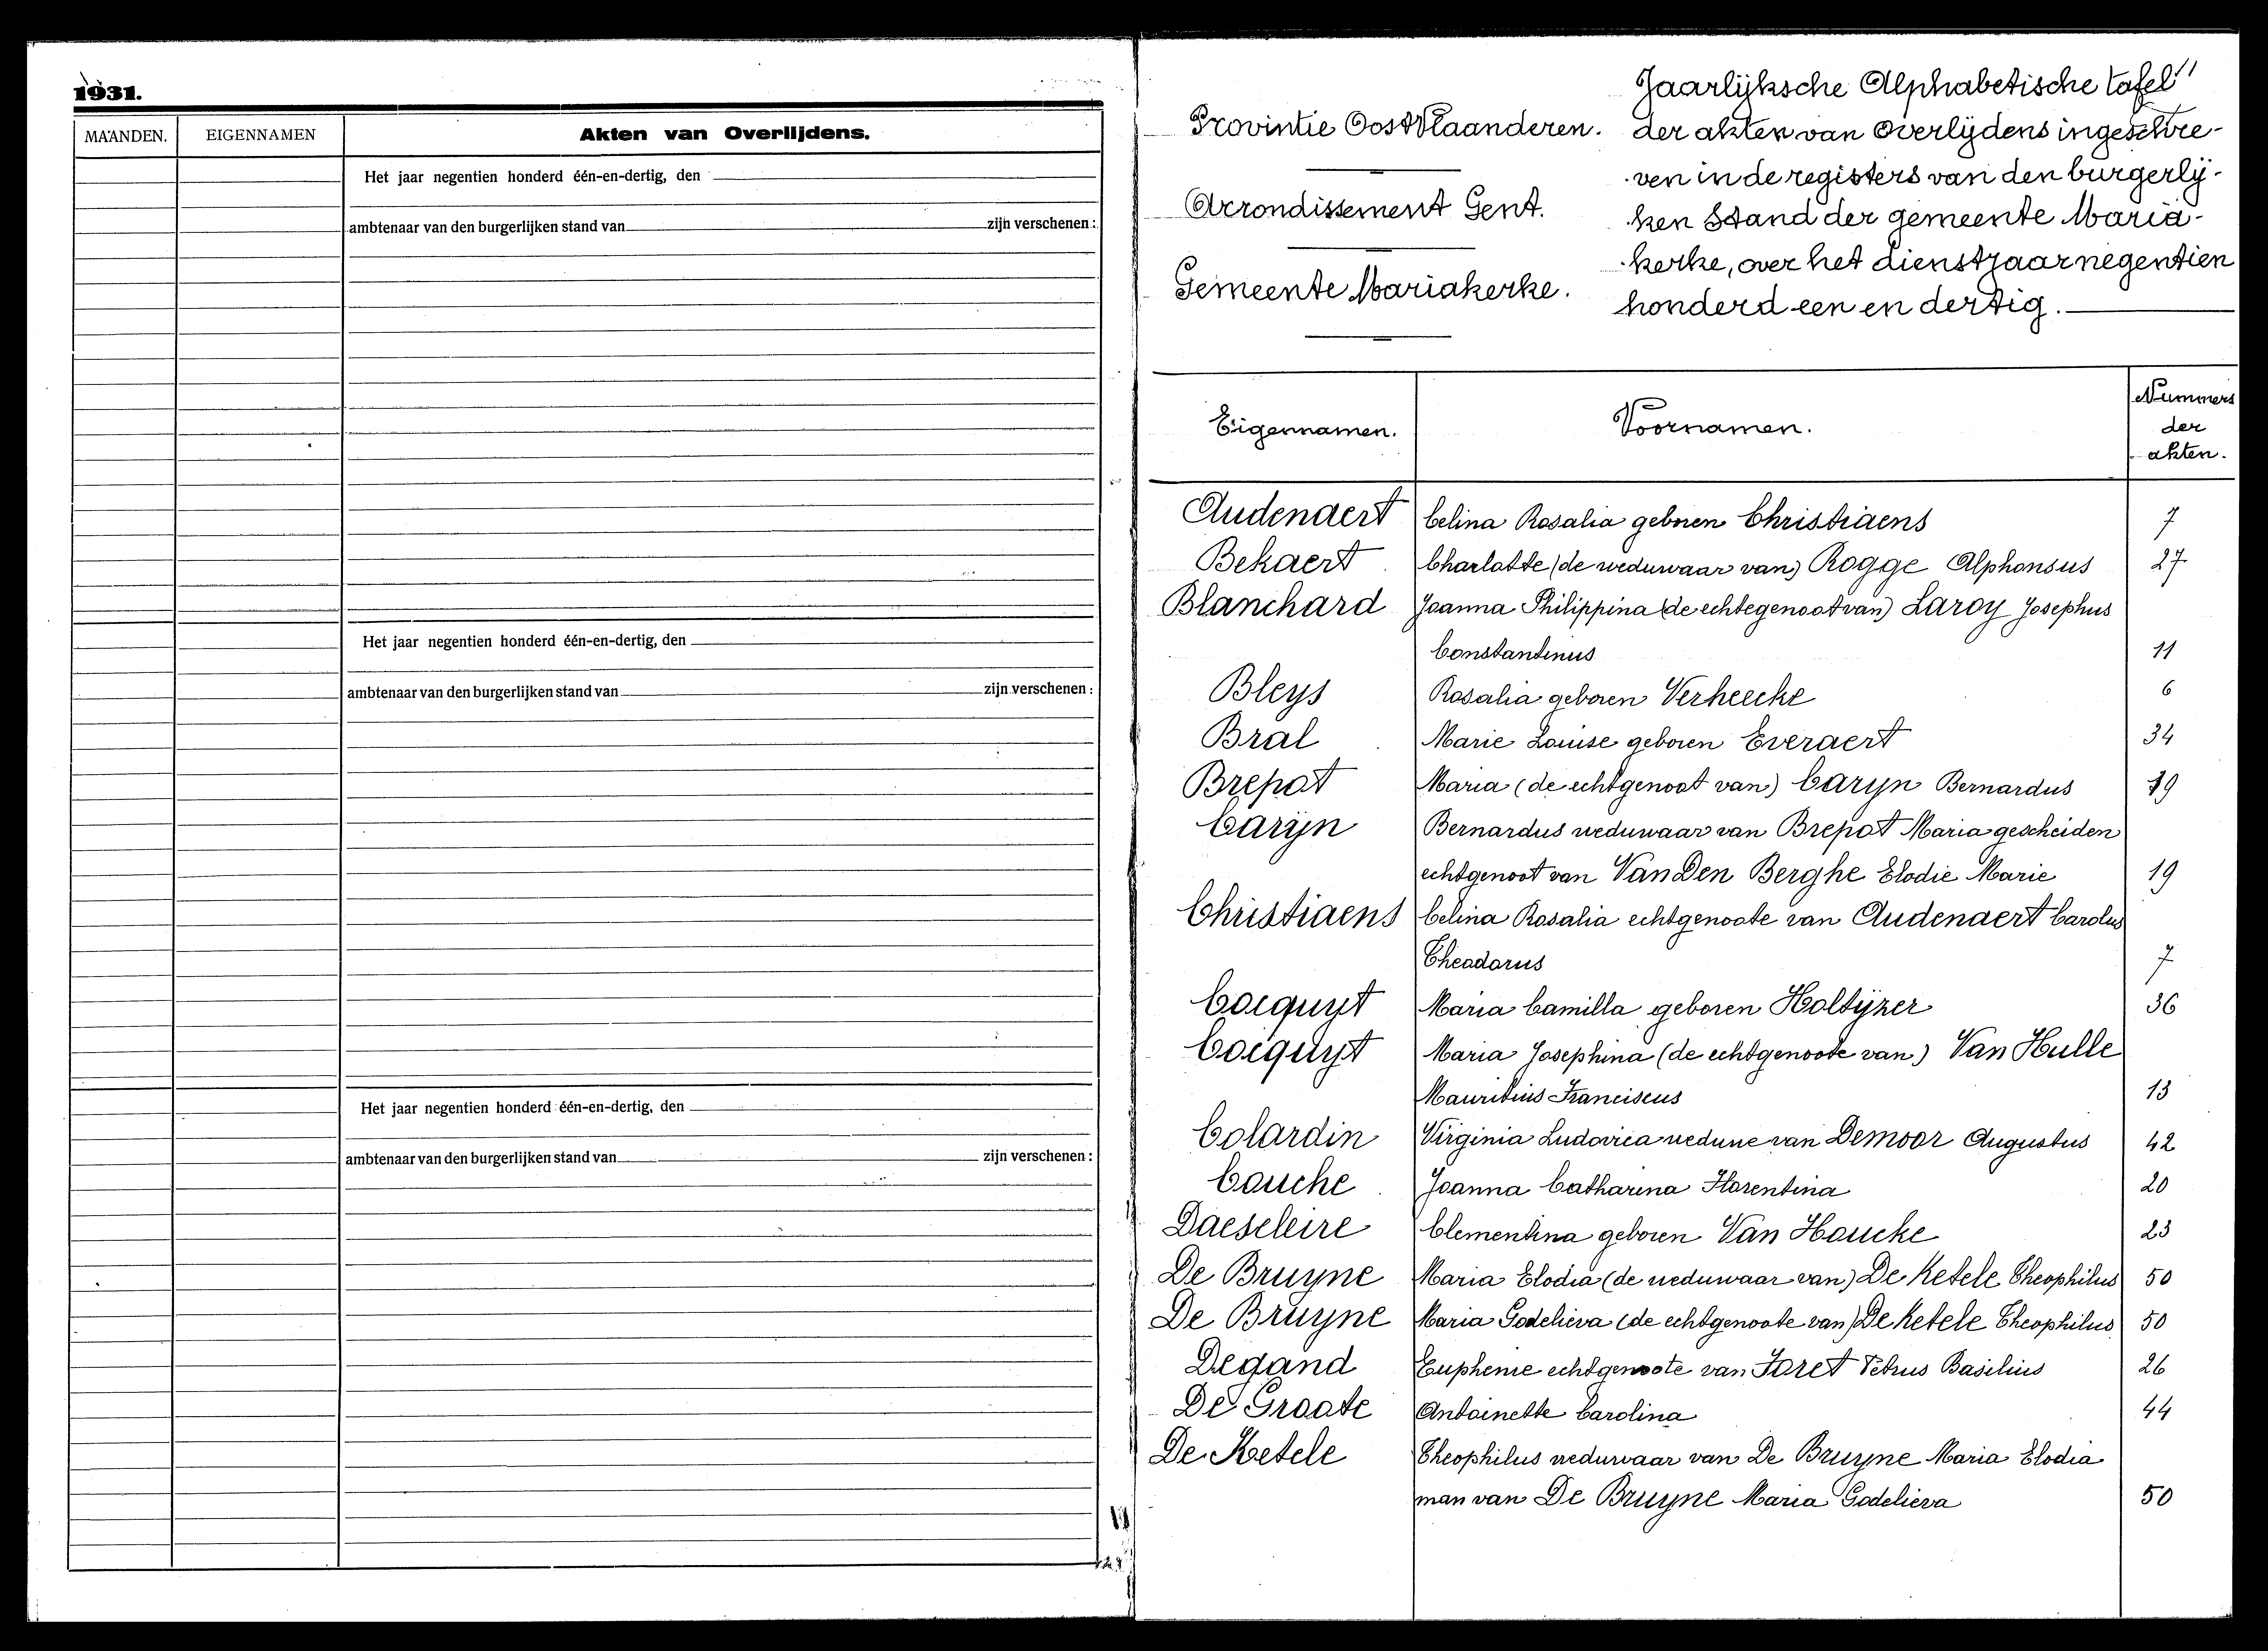 1931.
MAANDEN. EIGENNAMEN Akten van Overlijdens.
Het jaar negentien honderd één-en-dertig, den
ambtenaar van den burgerlijken stand van zijn verschenen :
Het jaar negentien honderd één-en-dertig, den
ambtenaar van den burgerlijken stand van zijn verschenen :
Het jaar negentien honderd één-en-dertig, den
ambtenaar van den burgerlijken stand van zijn verschenen :
Provintie Oost Vlaanderen.
Arrondissement Gent.
Gemeente Mariakerke.
Jaarlijksche Alphabetische tafel
der akten van overlijdens ingeschre-
ven in de registers van den burgerlij-
ken Stand der gemeente Maria-
kerke, over het dienstjaar negentien
honderd een en dertig.
Eigennamen. Voornamen. Nummers
der
akten.
Audenaert Celina Rosalia geboren Christiaens 7
Bekaert Charlotte (de weduwaar van) Rogge Alphonsus 27
Blanchard Joanna Philippina (de echtegenoot van) Laroy Josephus
Constantinus 11
Bleys Rosalia geboren Verheecke 6
Bral Marie Louise geboren Everaert 34
Brepot Maria (de echtgenoot van) Caryn Bernardus 19
Caryn Bernardus weduwaar van Brepot Maria gescheiden
echtgenoot van Van Den Berghe Elodie Marie 19
Christiaens Celina Rosalia echtgenoote van Audenaert Carolus
Theodorus 7
Cocquyt Maria Camilla geboren Holtyzer 36
Cocquyt Maria Josephina (de echtgenoote van) Van Hulle
Mauritius Franciscus 13
Colardin Virginia Ludovica weduwe van Demoor Augustus 42
Couche Joanna Catharina Florentina 20
Daeseleire Clementina geboren Van Houcke 23
De Bruyne Maria Elodia (de weduwaar van) De Ketele Theophilus 50
De Bruyne Maria Godelieva (de echtgenoote van) De Ketele Theophilus 50
Degand Euphenie echtgenoote van Foret Petrus Basilius 26
De Groote Antoinette Carolina 44
De Ketele Theophilus weduwaar van De Bruyne Maria Elodia
man van De Bruyne Maria Godelieva 50